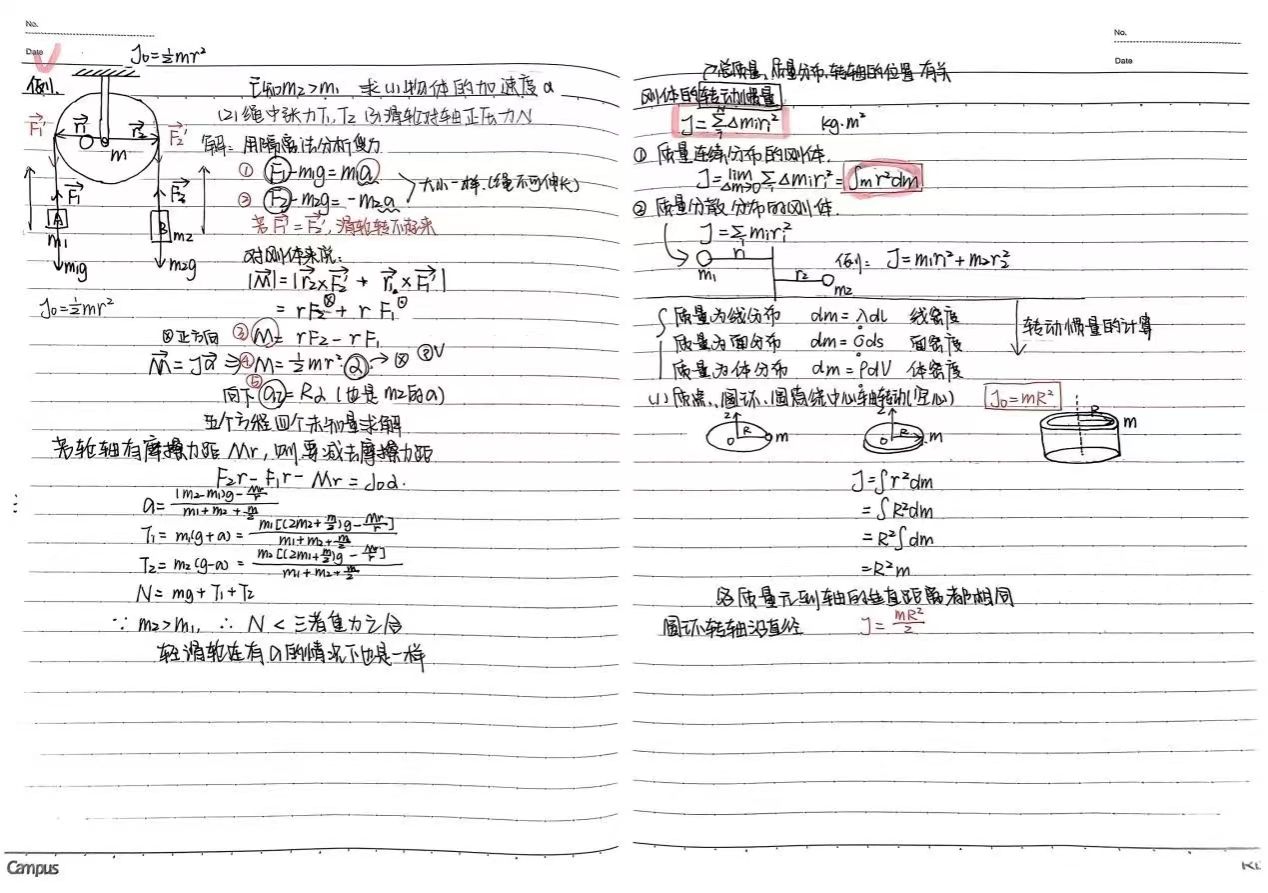 No.
Date
J₀=½mr²
例1.
已知m₂>m₁ 求(1)物体的加速度a
(2)绳中张力T₁,T₂ (3)滑轮对轴正压力N
解: 用隔离法分析受力
① F₁-m₁g=m₁a
② F₂-m₂g=-m₂a
大小一样.(绳不可伸长)
若F₁'=F₂',滑轮转不起来
F₁' r₁ O r₂ F₂'
m
F₁ F₂
A B
m₁ m₂
m₁g m₂g
J₀=½mr²
对刚体来说:
|M|=|r₂×F₂' + r₁×F₁'|
= rF₂⊗ + rF₁⊙
⊗正方向 ③ M= rF₂-rF₁
M=Jα ⇒ ④ M=½mr²α → ⊗
向下 ⑤ a = Rα (也是m₂的a)
五个方程四个未知量求解
若轮轴有摩擦力距Mr,则要减去摩擦力距
F₂r-F₁r-Mr=J₀α.
a=((m₂-m₁)g-Mr/r)/(m₁+m₂+m/2)
T₁=m₁(g+a)=(m₁[(2m₂+m/2)g-Mr/r])/(m₁+m₂+m/2)
T₂=m₂(g-a)=(m₂[(2m₁+m/2)g-Mr/r])/(m₁+m₂+m/2)
N=mg+T₁+T₂
∵ m₂>m₁, ∴ N<三者重力之合
轻滑轮在有a的情况下也是一样
Campus
No.
Date
→总质量、质量分布、转轴的位置有关
刚体的转动惯量
J=∑Δmᵢrᵢ² kg·m²
① 质量连续分布的刚体.
J=lim Δm→0 ∑Δmᵢrᵢ²=∫m r²dm
② 质量分散分布的刚体.
J=∑mᵢrᵢ²
m₁ r₁ r₂ m₂
例: J=m₁r₁²+m₂r₂²
质量为线分布 dm=λdl 线密度
质量为面分布 dm=σds 面密度
质量为体分布 dm=ρdV 体密度
转动惯量的计算
(1) 质点、圆环、圆筒绕中心轴转动(空心) J₀=mR²
z O R m
z O R m
R m
J=∫r²dm
=∫R²dm
=R²∫dm
=R²m
各质量元到轴的垂直距离都相同
圆环转轴沿直径 J=mR²/2